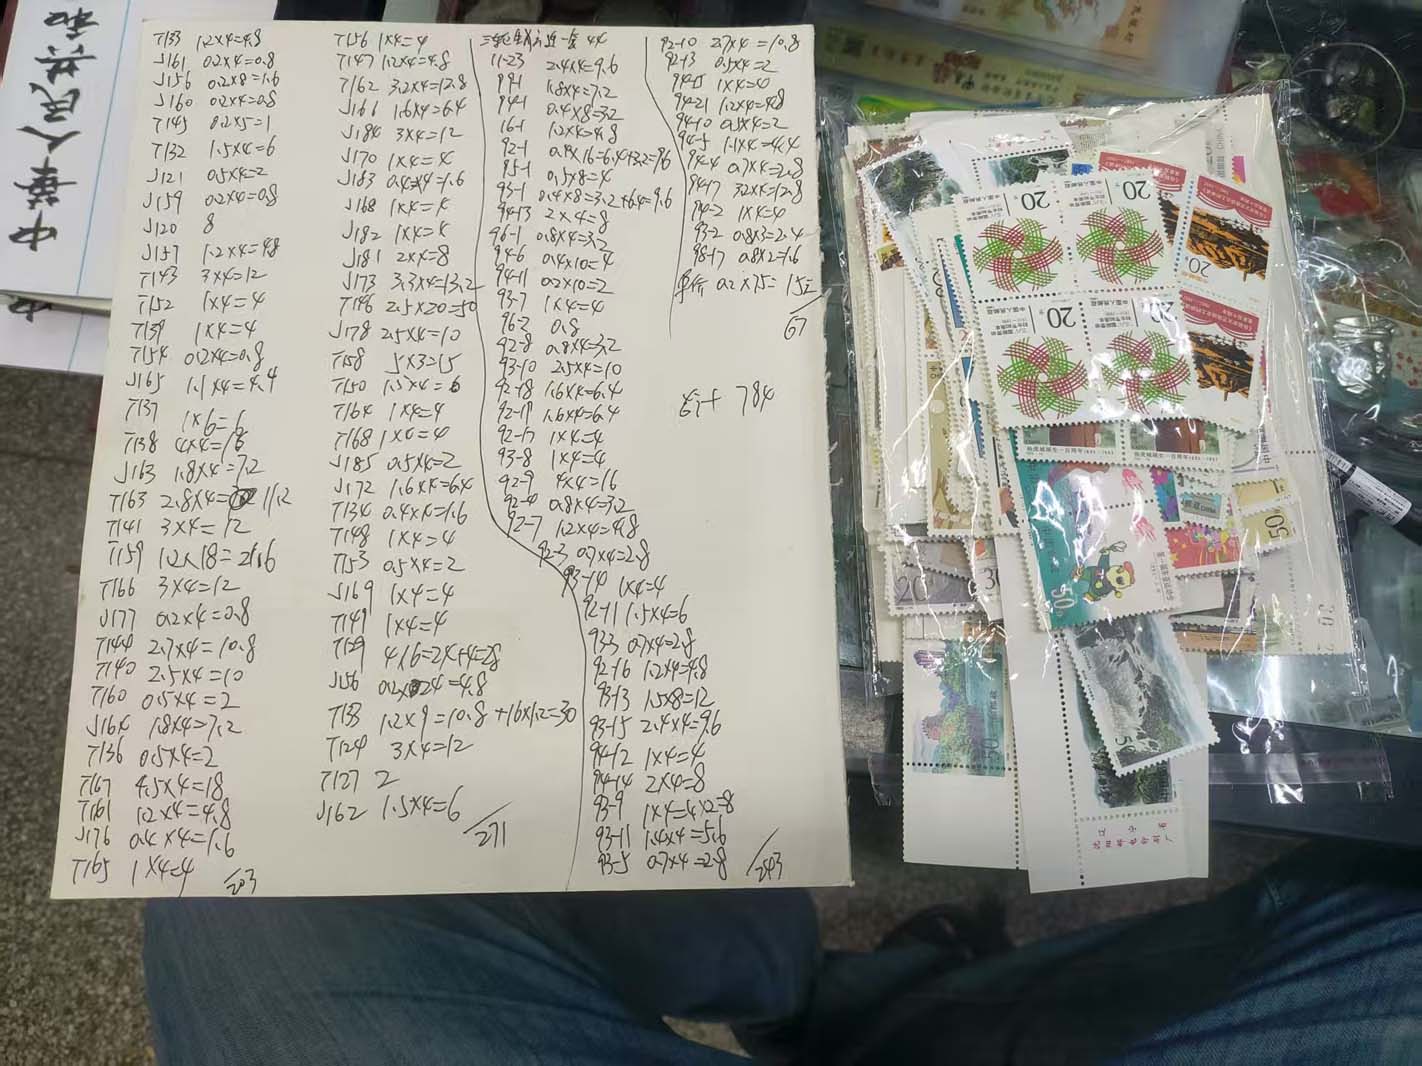 中華人民共和
T133 1.2×4=4.8
J161 0.2×4=0.8
J156 0.2×8=1.6
J160 0.2×4=0.8
T145 0.2×5=1
T132 1.5×4=6
J121 0.5×4=2
J159 0.2×4=0.8
J120 8
J157 1.2×4=4.8
T143 3×4=12
T152 1×4=4
T139 1×4=4
T154 0.2×4=0.8
J165 1.1×4=4.4
T137 1×6=6
T138 4×4=16
J163 1.8×4=7.2
T163 2.8×4= 11.2
T141 3×4=12
T159 1.2×18=21.6
T166 3×4=12
J177 0.2×4=0.8
T144 2.7×4=10.8
T140 2.5×4=10
T160 0.5×4=2
J164 1.8×4=7.2
T136 0.5×4=2
T167 4.5×4=18
T161 1.2×4=4.8
J176 0.4×4=1.6
T165 1×4=4
/203
T156 1×4=4
T147 1.2×4=4.8
T162 3.2×4=12.8
J166 1.6×4=6.4
J184 3×4=12
J170 1×4=4
J183 0.4×4=1.6
J168 1×4=4
J182 1×4=4
J181 2×4=8
J173 3.3×4=13.2
T146 2.5×20=50
J178 2.5×4=10
T158 5×3=15
T150 1.5×4=6
T164 1×4=4
T168 1×4=4
J185 0.5×4=2
J172 1.6×4=6.4
T134 0.4×4=1.6
T148 1×4=4
T153 0.5×4=2
J169 1×4=4
T149 1×4=4
T129 4×6=24+4=28
J156 0.2×24=4.8
T133 1.2×9=10.8+16×1.2=30
T124 3×4=12
T127 2
J162 1.5×4=6
/271
一套 44
11-23 2.4×4=9.6
99-1 1.8×4=7.2
94-1 0.4×8=3.2
16-1 1.2×4=4.8
92-1 0.4×16=6.4+3.2=9.6
95-1 0.5×8=4
93-1 0.4×8=3.2+6.4=9.6
94-13 2×4=8
96-1 0.8×4=3.2
94-6 0.4×10=4
94-11 0.2×10=2
93-7 1×4=4
96-2 0.8
92-8 0.8×4=3.2
93-10 2.5×4=10
92-18 1.6×4=6.4
92-19 1.6×4=6.4
92-17 1×4=4
93-8 1×4=4
92-9 4×4=16
92-4 0.8×4=3.2
92-7 1.2×4=4.8
92-3 0.7×4=2.8
93-14 1×4=4
92-11 1.5×4=6
93-3 0.7×4=2.8
92-16 1.2×4=4.8
93-13 1.5×8=12
93-15 2.4×4=9.6
94-12 1×4=4
94-14 2×4=8
93-9 1×4=4×2=8
93-11 1.4×4=5.6
93-5 0.7×4=2.8
/243
92-10 2.7×4=10.8
92-13 0.5×4=2
94-15 1×4=4
94-21 1.2×4=4.8
94-10 0.5×4=2
94-5 1.1×4=4.4
94-4 0.7×4=2.8
94-17 3.2×4=12.8
94-2 1×4=4
93-2 0.8×3=2.4
98-17 0.8×2=1.6
0.2×75=15
/67
784
20
20
20
20
20
50
20
30
50
50
辽宁省
沈阳邮电印刷厂